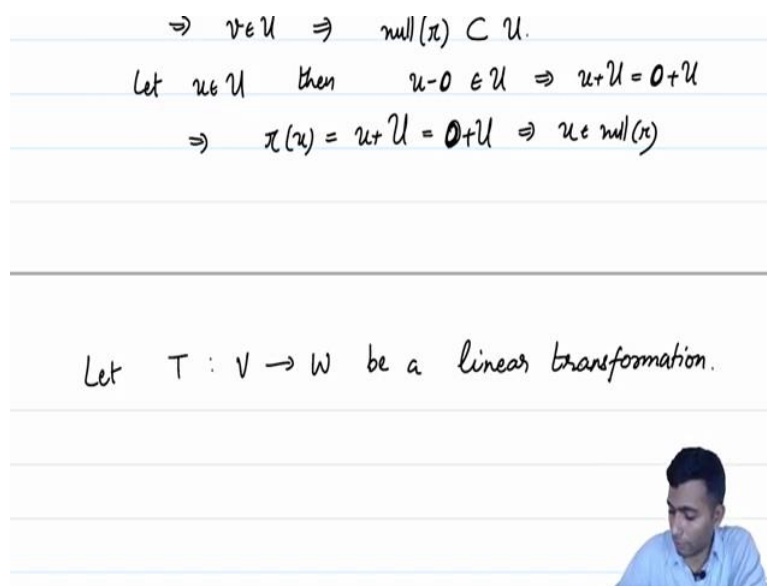 ⇒ v∈U ⇒ null(π) ⊂ U.
Let u∈U then u-0 ∈ U ⇒ u+U = 0+U
⇒ π(u) = u+U = 0+U ⇒ u∈ null(π)
Let T : V → W be a linear transformation.